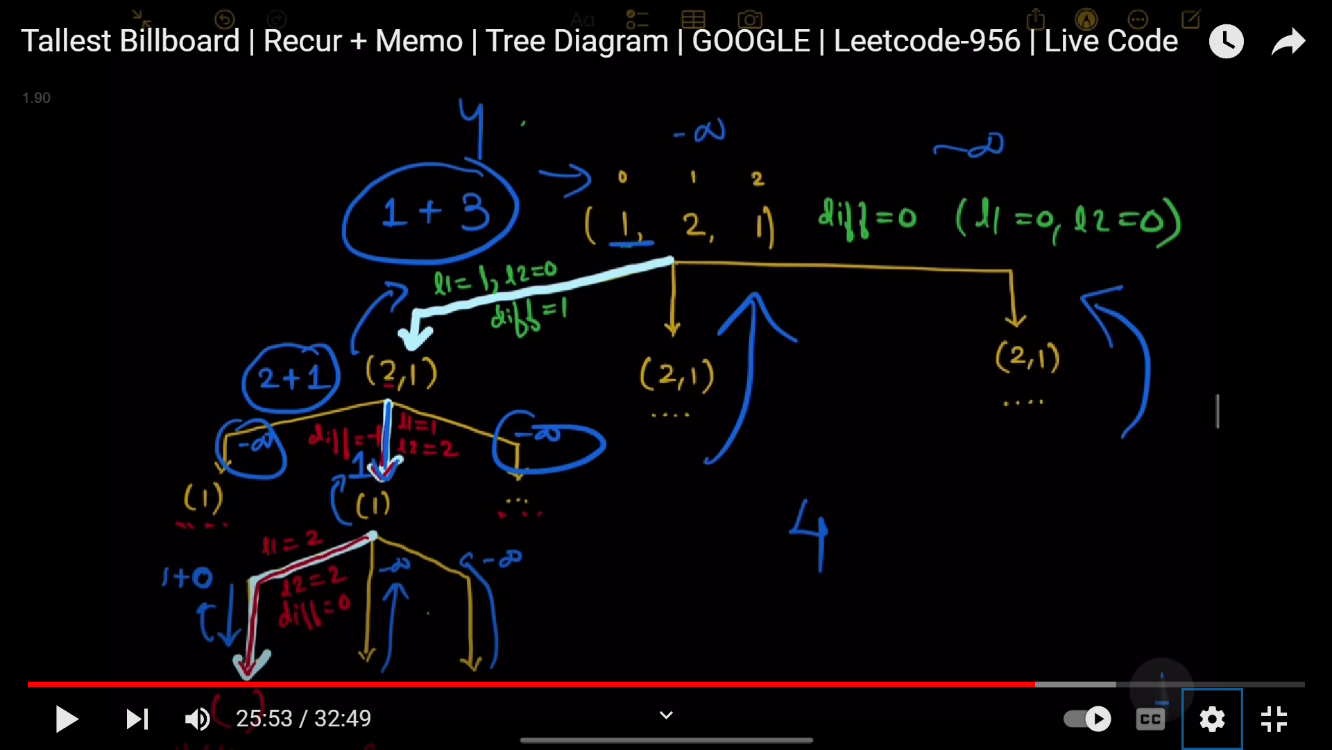 Aa
Tallest Billboard | Recur + Memo | Tree Diagram | GOOGLE | Leetcode-956 | Live Code
1.90
4
-∞
-∞
0 1 2
1 + 3
(1, 2, 1) diff=0 (l1=0, l2=0)
l1=1, l2=0
diff=1
2+1 (2,1) (2,1) (2,1)
.... ....
-∞ diff=-1 l1=1 -∞
l2=2
1
(1) (1) ...
l1=2
1+0 l2=2 -∞ -∞
diff=0
4
( )
25:53 / 32:49
CC